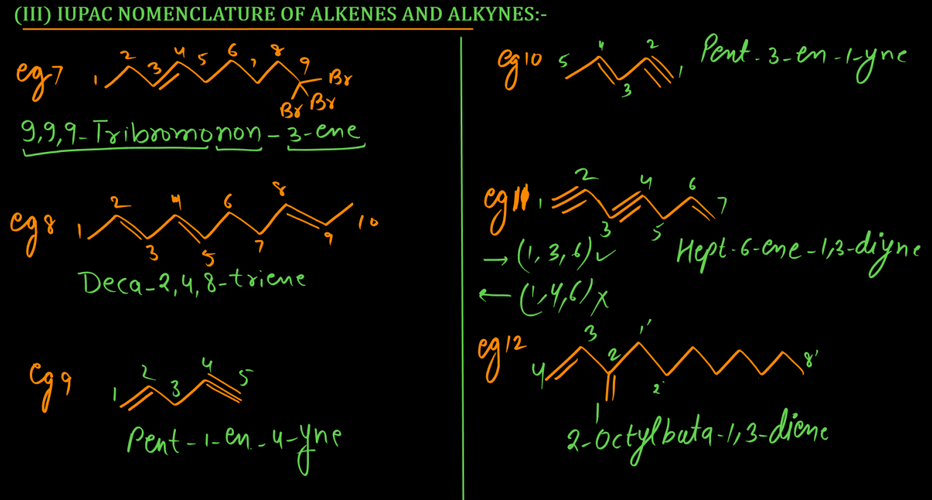 (III) IUPAC NOMENCLATURE OF ALKENES AND ALKYNES:-
eg7
1 2 3 4 5 6 7 8 9 Br
Br Br
9,9,9-Tribromonon-3-ene
eg8
1 2 3 4 5 6 7 8 9 10
Deca-2,4,8-triene
eg9
1 2 3 4 5
Pent-1-en-4-yne
eg10
5 4 3 2 1
Pent-3-en-1-yne
eg11
1 2 3 4 5 6 7
→ (1,3,6) ✓
Hept-6-ene-1,3-diyne
← (1,4,6) x
eg12
4 3 2 1 1' 2' 8'
2-Octylbuta-1,3-diene